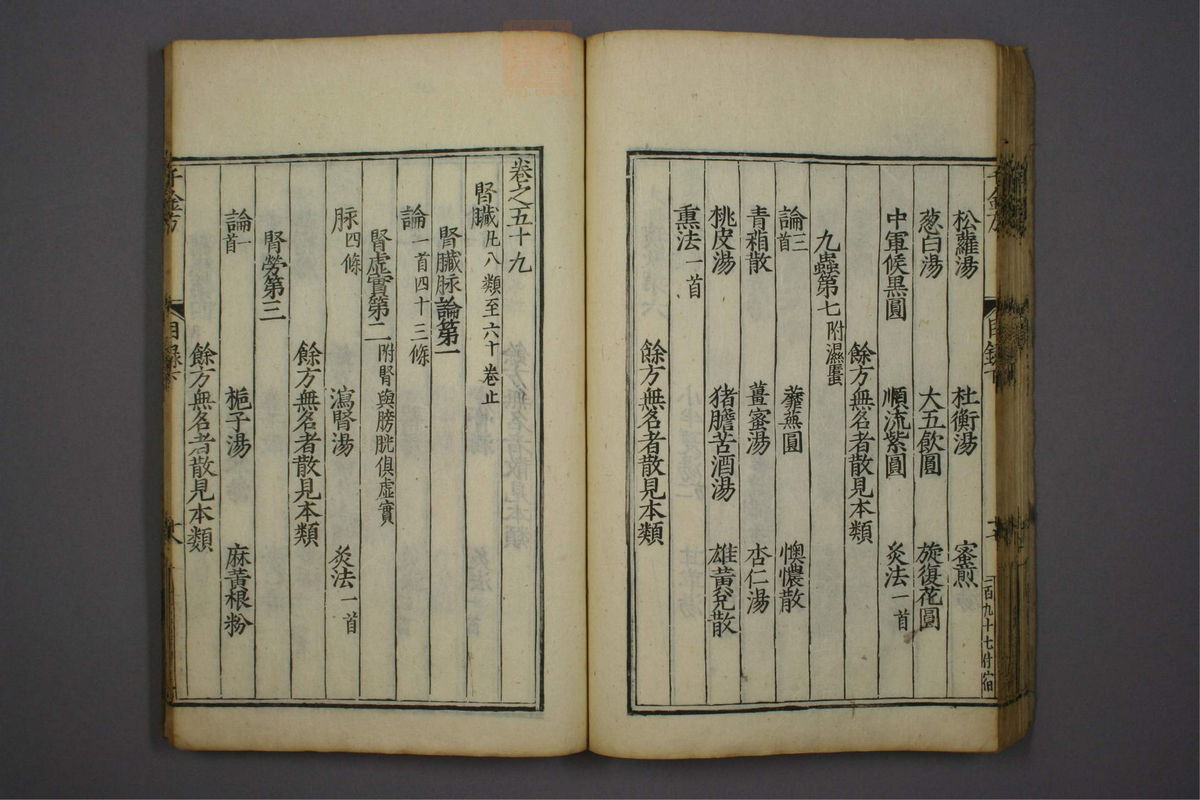 松蘿湯 杜衡湯 蜜煎
葱白湯 大五飲圓 旋復花圓
中軍候黒圓 順流紫圓 灸法一首
餘方無名者散見本類
九蟲第七附濕䘌
論三首 蘼蕪圓 懊憹散
青葙散 薑蜜湯 杏仁湯
桃皮湯 猪膽苦酒湯 雄黄兊散
熏法一首
餘方無名者散見本類
卷之五十九
腎臟凡八類至六十卷止
腎臟脉論第一
論一首四十三條
腎虛實第二附腎與膀胱俱虛實
脉四條 瀉腎湯 灸法一首
餘方無名者散見本類
腎勞第三
論一首 梔子湯 麻黄根粉
餘方無名者散見本類
千金方 目録下